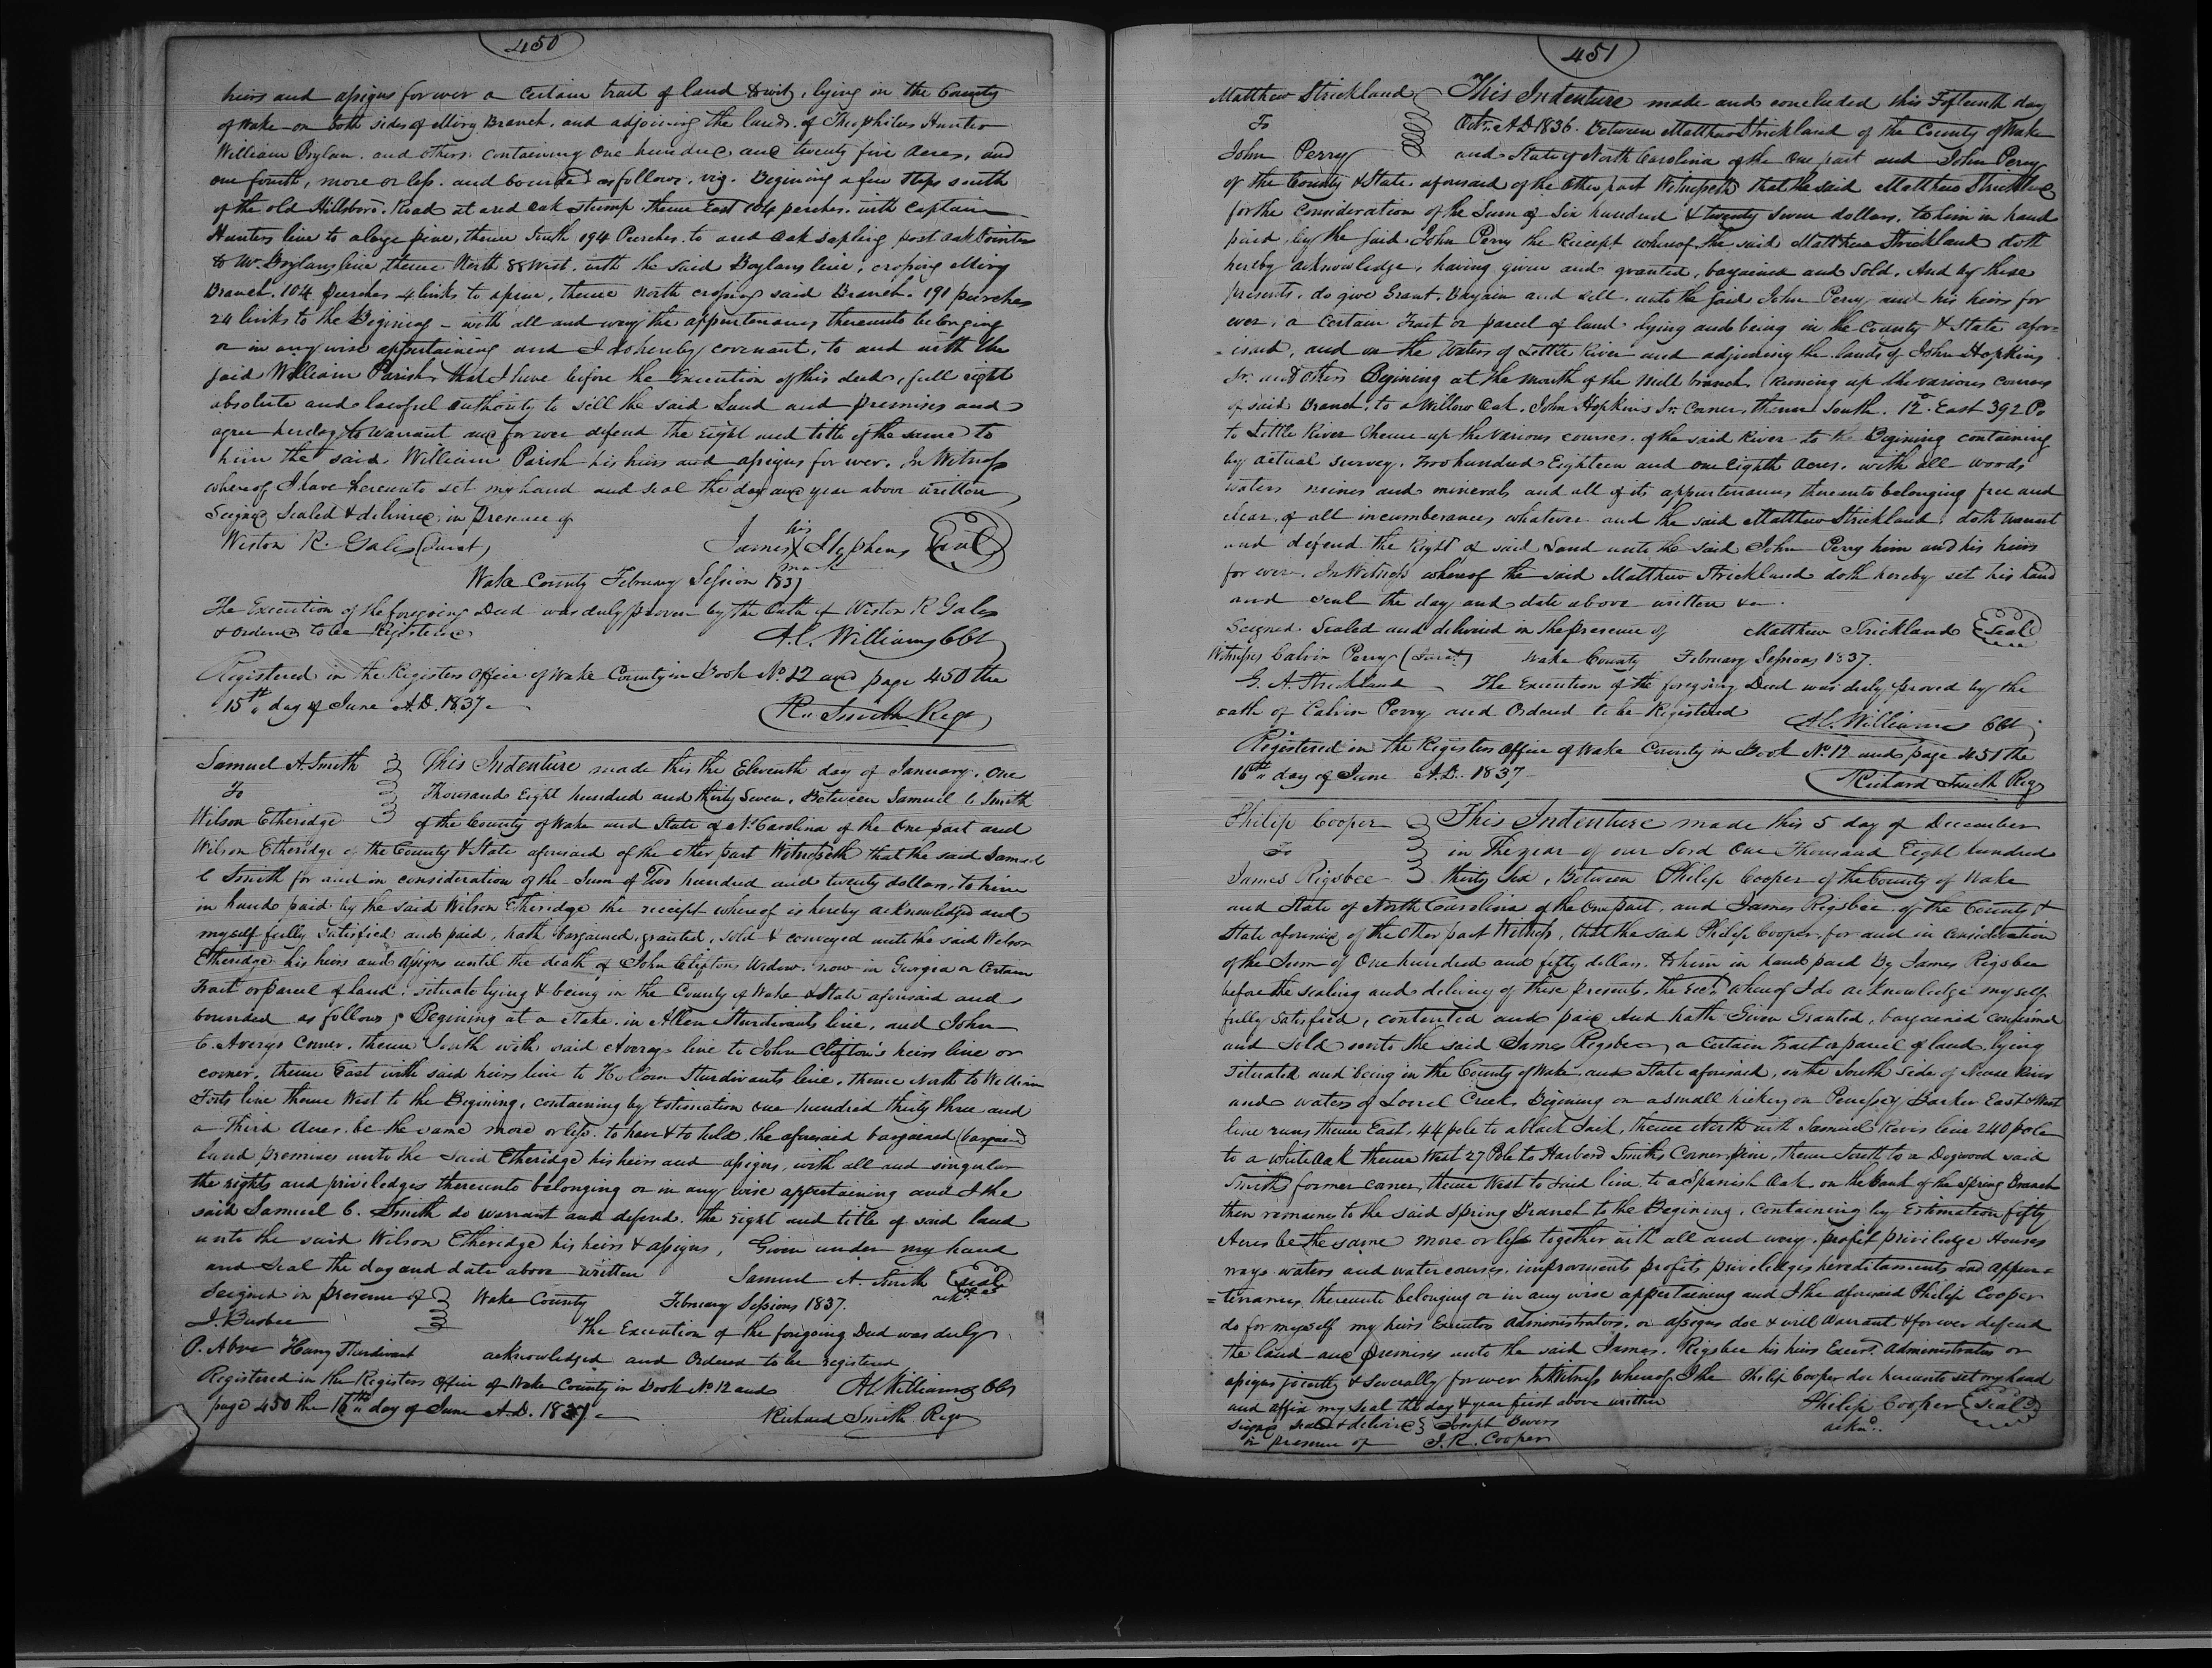 450
heirs and assigns forever a Certain tract of land to wit, lying in the County
of Wake on both sides of Miry Branch, and adjoining the lands of Theophilus Hunter
William Boylan, and others containing One hundred and twenty five Acres, and
one fourth, more or less. and bounded as follows, viz. Begining a few steps south
of the old Hillsboro. Road at a red Oak stump, thence East 104 perches. with Captain
Hunters line to a large pine, thence South 194 Perches. to a red Oak Sapling post oak Pointers
to Wm Boylans line, thence North 88 West, with the said Boylans line, crossing Miry
Branch. 104 perches 4 links to a pine, thence North crossing said Branch. 191 perches
24 links to the Begining – with all and every the appurtenances thereunto belonging
or in any wise appertaining and I do hereby covenant, to and with the
said William Parish that I have before the Execution of this deed, full right
absolute and lawful authority to sell the said Land and premises and
agree hereby to warrant and forever defend the right and title of the same to
him the said William Parish his heirs and assigns for ever. In Witness
whereof I have hereunto set my hand and seal the day and year above written
Seigned Sealed & delivered in presence of
Weston R. Gales (Jurat) James his X mark Stephens Seal
Wake County February Session 1837
The Execution of the foregoing Deed was duly proven by the Oath of Weston R Gales
& Ordered to be Registered A.C. Williams Clk
Registered in the Registers Office of Wake County in Book No. 12 and page 450 the
15th day of June A.D. 1837 – Rd. Smith Regr
Samuel A. Smith This Indenture made this the Eleventh day of January, One
To Thousand Eight hundred and thirty Seven, Between Samuel C Smith
Wilson Etheridge of the County of Wake and State of N. Carolina of the One part and
Wilson Etheridge of the County & State aforesaid of the other part Witnesseth that the said Samuel
C Smith for and in consideration of the Sum of Two hundred and twenty dollars, to him
in hand paid by the said Wilson Etheridge the receipt whereof is hereby acknowledged and
myself fully satisfied and paid, hath bargained, granted, sold & conveyed unto the said Wilson
Etheridge his heirs and assigns until the death of John Cliftons Widow, now in Georgia a Certain
Tract or parcel of land, situate lying & being in the County of Wake & State aforesaid and
bounded as follows, Begining at a stake, in Allen Sturdivants line, and John
C. Averys Corner, thence South with said Averys line to John Clifton's heirs line or
corner, thence East with said heirs line to Sturdivants line, thence North to William
Forts line thence West to the Begining, containing by Estimation one hundred thirty three and
a Third Acres. be the same more or less. to have & to hold, the aforesaid bargained (bargained
land premises unto the said Etheridge his heirs and assigns, with all and singular
the rights and priviledges thereunto belonging or in any wise appertaining and I the
said Samuel C. Smith do warrant and defend. the right and title of said land
unto the said Wilson Etheridge his heirs & assigns, Given under my hand
and Seal the day and date above written Samuel A. Smith Seal
Seigned in presence of Wake County February Sessions 1837.
J. Busbee The Execution of the foregoing Deed was duly
Harry Sturdivant acknowledged and Ordered to be registered
Registered in the Registers Office of Wake County in Book No. 12 and A.C. Williams Clk
page 450 the 16th day of June A.D. 1837 – Richard Smith Regr
451
Matthew Strickland This Indenture made and concluded this Fifteenth day
To Octr. A.D 1836. Between Matthew Strickland of the County of Wake
John Perry and State of North Carolina of the One part and John Perry
of the County & State aforesaid of the Other part Witnesseth that the said Matthew Strickland
for the Consideration of the Sum of Six hundred & twenty Seven dollars, to him in hand
paid by the said John Perry the Receipt whereof the said Matthew Strickland doth
hereby acknowledge, having given and granted, bargained and Sold, And by these
presents, do give Grant, Bargain and sell, unto the said John Perry and his heirs for
ever, a Certain Tract or parcel of land lying and being in the County & State afor=
=esaid, and on the Waters of Little River and adjoining the lands of John Hopkins
Sr. and others Begining at the mouth of the Mill branch, Running up the various courses
of said Branch, to a Willow Oak, John Hopkins Sr. Corner, thence South. 12°. East 392 Po
to Little River thence up the various courses, of the said River to the Begining containing
by actual survey. Two hundred Eighteen and one Eighth Acres. with all woods
waters mines and minerals and all of its appurtenances thereunto belonging free and
clear, of all incumberances whatever and the said Matthew Strickland, doth warrant
and defend the Right of said Land unto the said John Perry him and his heirs
for ever. In Witness whereof the said Matthew Strickland doth hereby set his hand
and seal the day and date above written &c.
Seigned Sealed and delivered in the presence of Matthew Strickland Seal
Witness Calvin Perry (Jurat) Wake County February Sessions 1837.
G. A. Strickland – The Execution of the foregoing Deed was duly proved by the
oath of Calvin Perry and Ordered to be Registered A.C. Williams Clk
Registered in the Registers Office of Wake County in Book No. 12 and page 451 the
16th day of June A.D. 1837 – Richard Smith Regr
Philip Cooper This Indenture made this 5 day of December
To in the year of our Lord One Thousand Eight hundred
James Rigsbee thirty Six, Between Philip Cooper of the County of Wake
and State of North Carolina of the One part, and James Rigsbee of the County &
State aforesaid of the Other part Witness, that the said Philip Cooper for and in consideration
of the Sum of One hundred and fifty dollars. to him in hand paid By James Rigsbee
before the sealing and delivery of these presents, the Rect. whereof I do acknowledge myself
fully satisfied, contented and paid And hath Given Granted, bargained confirmed
and Sold unto the said James Rigsbee, a Certain Tract or parcel of land, lying
situated and being in the County of Wake and State aforesaid, on the South Side of Neuse River
and waters of Lorrel Creek, Begining on a small hickory on Barker East & West
line runs thence East, 44 pole to a black Jack, thence North with Samuel line 240 pole
to a white Oak thence West 27 Pole to Harbard Smiths Corner pine, thence South to a Dogwood said
Smiths former corner, thence West to said line, to a Spanish Oak on the bank of the Spring Branch
then to the said Spring Branch to the Begining, Containing by Estimation fifty
Acres be the same more or less together with all and every profit priviledge Houses
ways waters and watercourses, improvments profits priviledges hereditaments and appur=
=tenances, thereunto belonging or in any wise appertaining and I the aforesaid Philip Cooper
do for myself my heirs Executors Administrators, or assigns doe & will warrant & forever defend
the land and premises unto the said James. Rigsbee his heirs Execrs. Administrators or
assigns jointly & Severally forever In Witness whereof I the Philip Cooper doe hereunto set my hand
and affix my Seal the day & year first above written Philip Cooper Seal
Signed Seald & delivired Joseph Bevers ackd.
in presence of J. R. Cooper